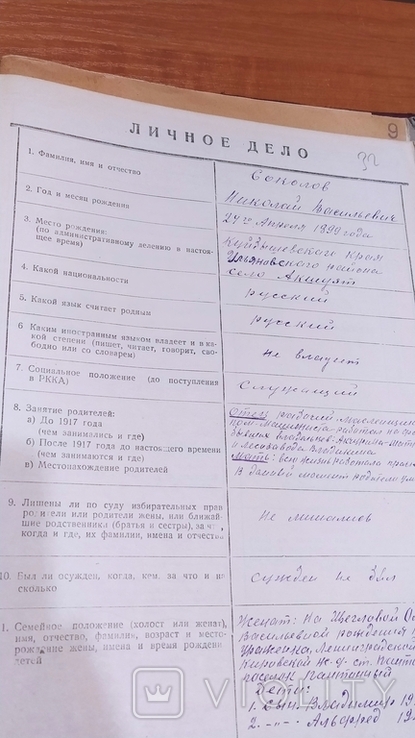 9
32
ЛИЧНОЕ ДЕЛО
1. Фамилия, имя и отчество
Соколов
Николай Васильевич
2. Год и месяц рождения
24го Апреля 1899 года
3. Место рождения:
(по административному делению в настоя-
щее время)
Куйбышевского края
Ульяновского района
село
4. Какой национальности
русский
5. Какой язык считает родным
русский
6 Каким иностранным языком владеет и в ка-
кой степени (пишет, читает, говорит, сво-
бодно или со словарем)
не владеет
7. Социальное положение (до поступления
в РККА)
Служащий
8. Занятие родителей:
а) До 1917 года
(чем занимались и где)
б) После 1917 года до настоящего времени
(чем занимаются и где)
в) Местонахождение родителей
Отец рабочий
работал на
бывших
и лесозавода
Мать: всю жизнь
В данный момент родители
9. Лишены ли по суду избирательных прав
родители или родители жены, или ближай-
шие родственники (братья и сестры), за
когда и где, их фамилия, имена и отчество
Не лишались
10. Был ли осужден, когда, кем, за что и
сколько
Сужден не был
1. Семейное положение (холост или женат),
имя, отчество, фамилия, возраст и место-
рождение жены, имена и время рождения
детей
Женат: На Щегловой
Васильевной рождения
уроженка, Ленинградской
Кировской ж.д. ст.
поселок
Дети:
1. Сын. Владимир 19
2. -"- Альфред 19
VIOLITY